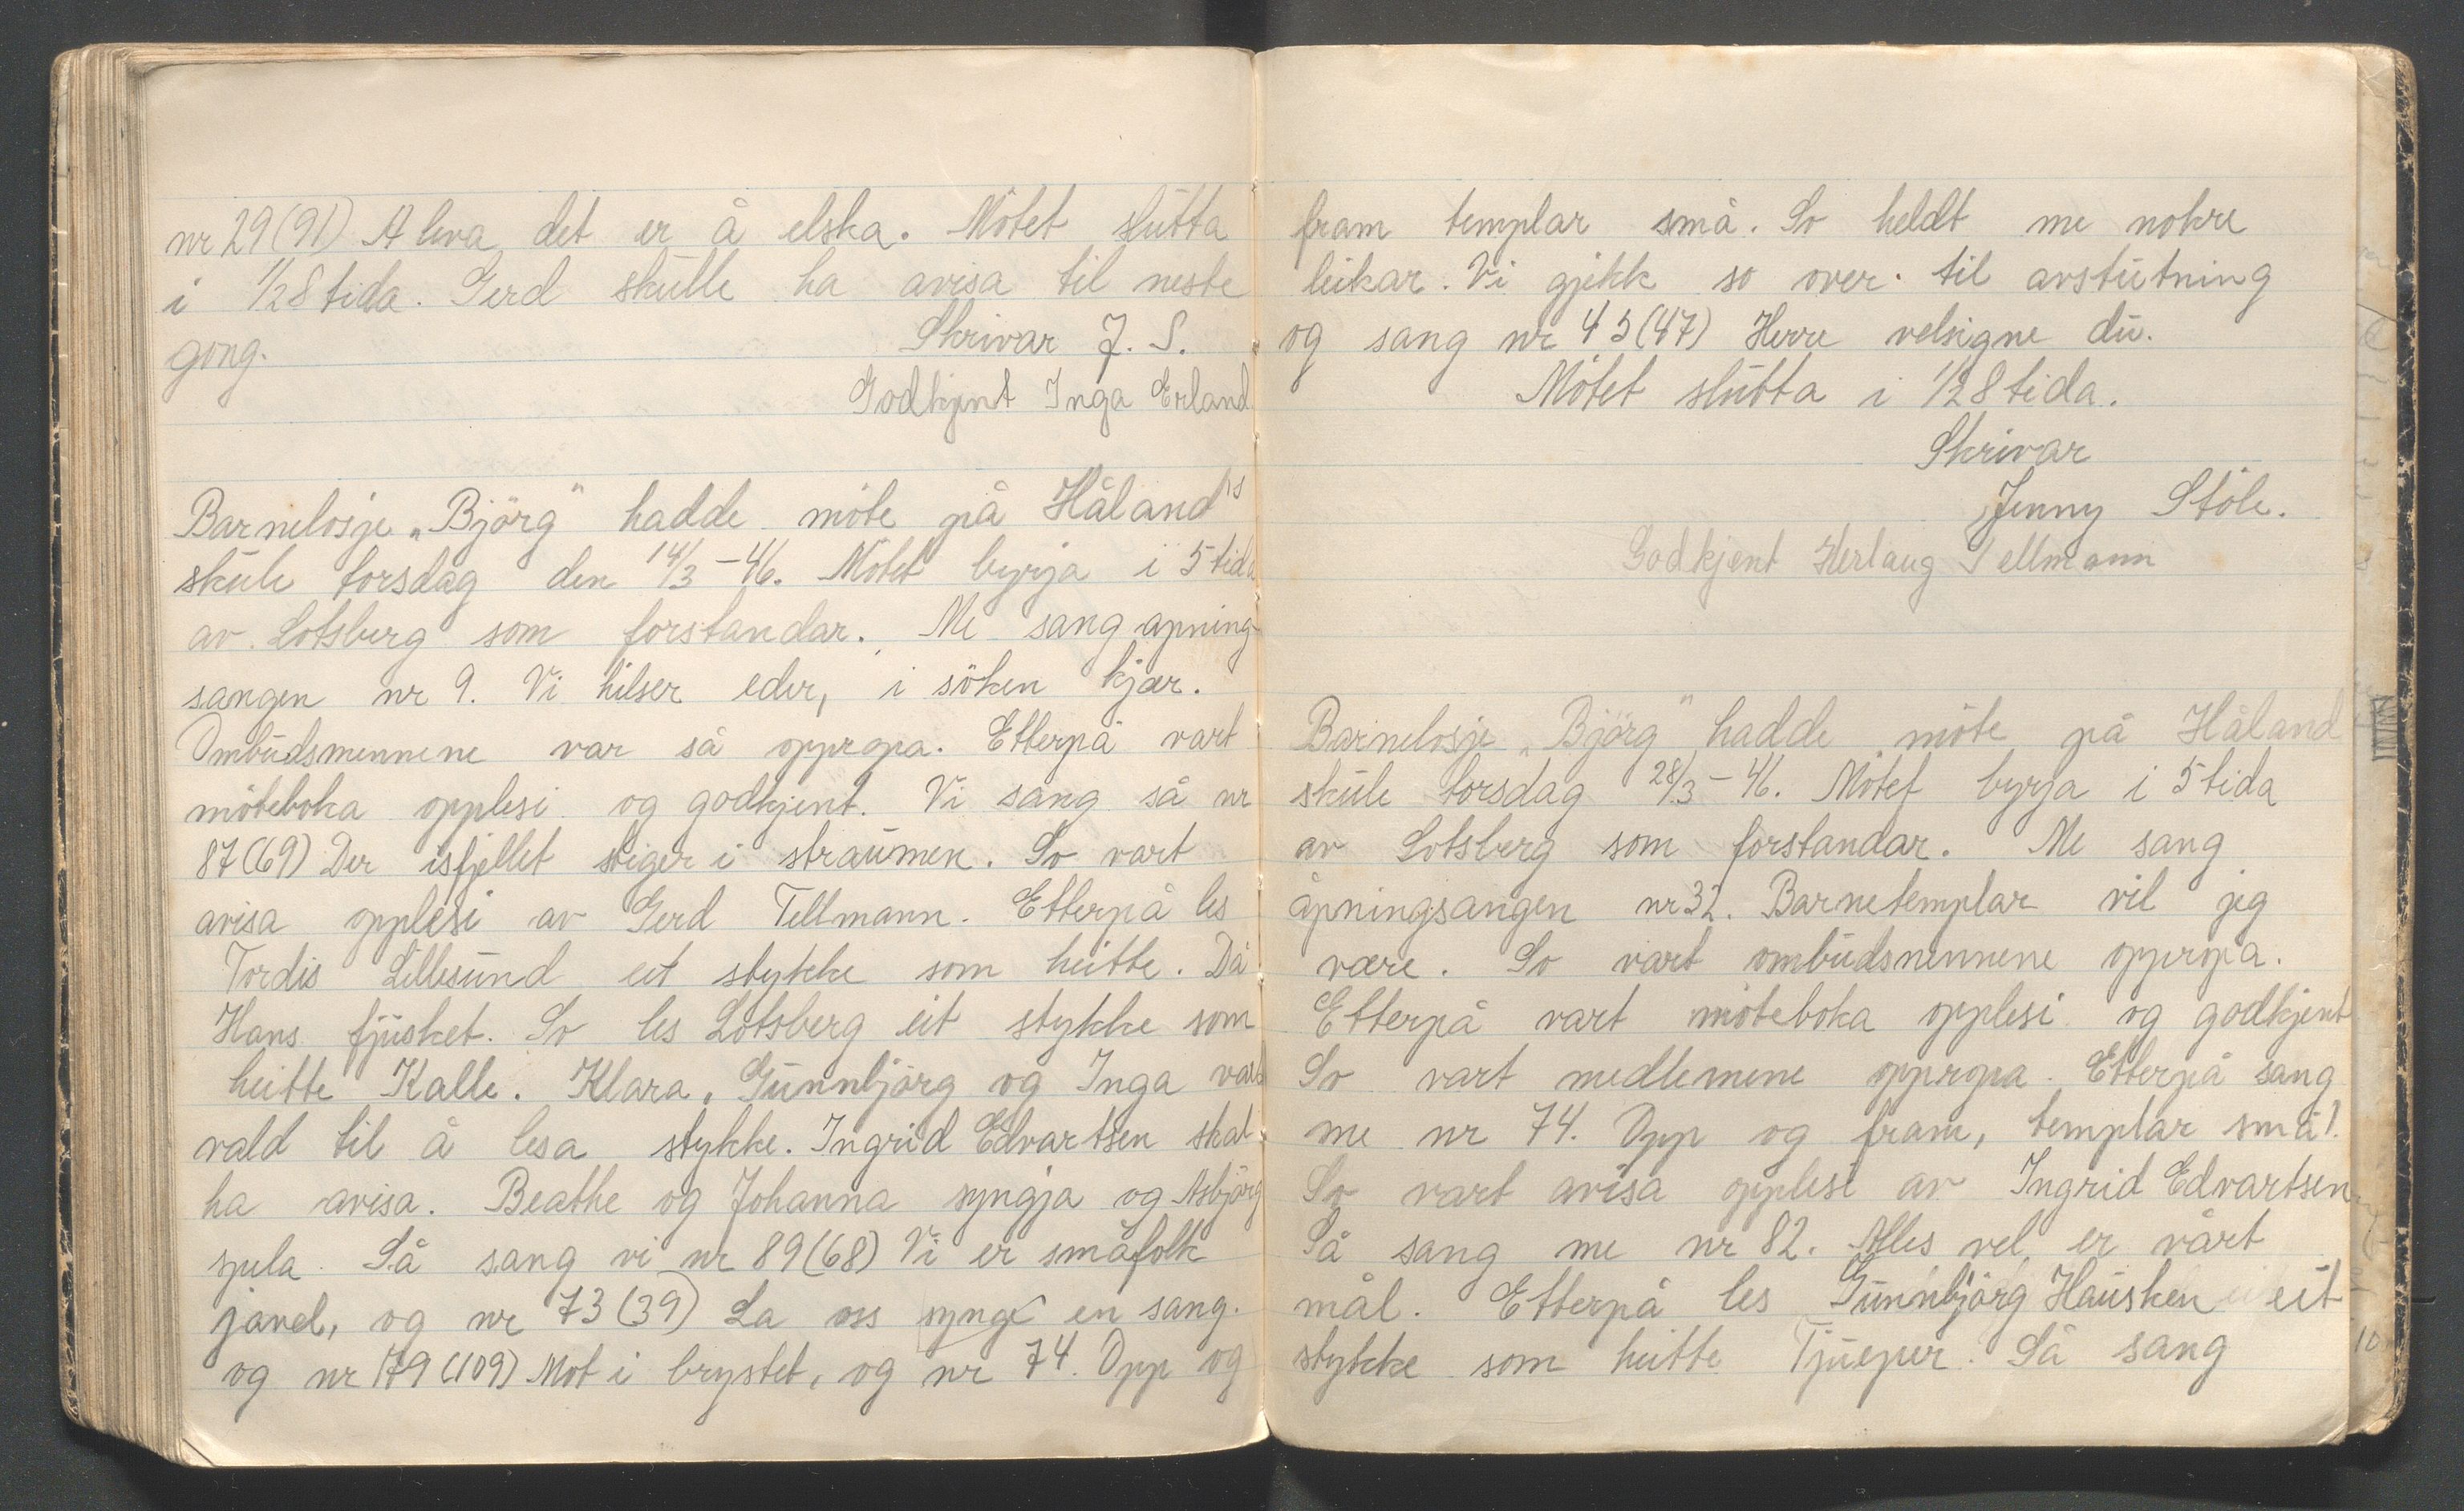 nr 29 (91) A leva det er å elska. Mötet slutta
i 1/28 tida. Gerd skulle ha avisa til neste
gong.
Skrivar J. S.
Godkjent Inga Erland
Barnelosje „Björg" hadde möte på Hålands
skule torsdag den 14/3 - 46. Mötet byrja i 5 tida
av Lotsberg som forstandar. Me sang apning-
sangen nr 9. Vi hilser eder, i söken kjær.
Ombudsmennene var så oppropa. Etterpå vart
möteboka opplesi og godkjent. Vi sang så nr
87 (69) Der isfjellet stiger i straumen. So vart
avisa opplesi av Gerd Tellmann. Etterpå les
Tordis Lillesund eit stykke som heitte. Då
Hans fjusket. So les Lotsberg eit stykke som
heitte Kalle. Klara, Gunnbjörg og Inga vart
vald til å lesa stykke. Ingrid Edvartsen skal
ha avisa. Beathe og Johanna syngja og Asbjörg
spela. Så sang vi nr 89 (68) Vi er småfolk
javel, og nr 73 (39) La oss synge en sang.
og nr 179 (109) Mot i brystet, og nr 74. Opp og
fram templar små. So heldt me nokre
leikar. Vi gjekk so over til avslutning
og sang nr 45 (47) Herre velsigne du.
Mötet slutta i 1/28 tida.
Skrivar
Jenny Stöle.
Godkjent Herlaug Tellmann
Barnelosje „Björg" hadde möte på Håland
skule torsdag 28/3 - 46. Mötet byrja i 5 tida
av Lotsberg som forstandar. Me sang
åpningsangen nr 32. Barnetemplar vil jeg
være. So vart ombudsmennene oppropa.
Etterpå vart möteboka opplesi og godkjent
So vart medlemene oppropa. Etterpå sang
me nr 74. Opp og fram, templar små!.
So vart avisa opplesi av Ingrid Edvartsen
Så sang me nr 82. Alles vel er vårt
mål. Etterpå les Gunnbjörg Hausken eit
stykke som heitte Tjueper. Så sang